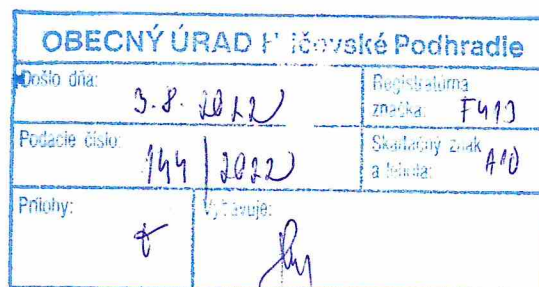 OBECNÝ ÚRAD Hričovské Podhradie
Došlo dňa: 3.8.2022
Registratúrna značka: F413
Podacie číslo: 144/2022
Skartačný znak a lehota: A10
Prílohy:
Vybavuje: